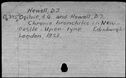 Newell, D.J.
Ogilvie, A.G. and Newell, D.J.
Chronic bronchitis in New-
castle Upon Tyne Edinburgh
London, 1957.